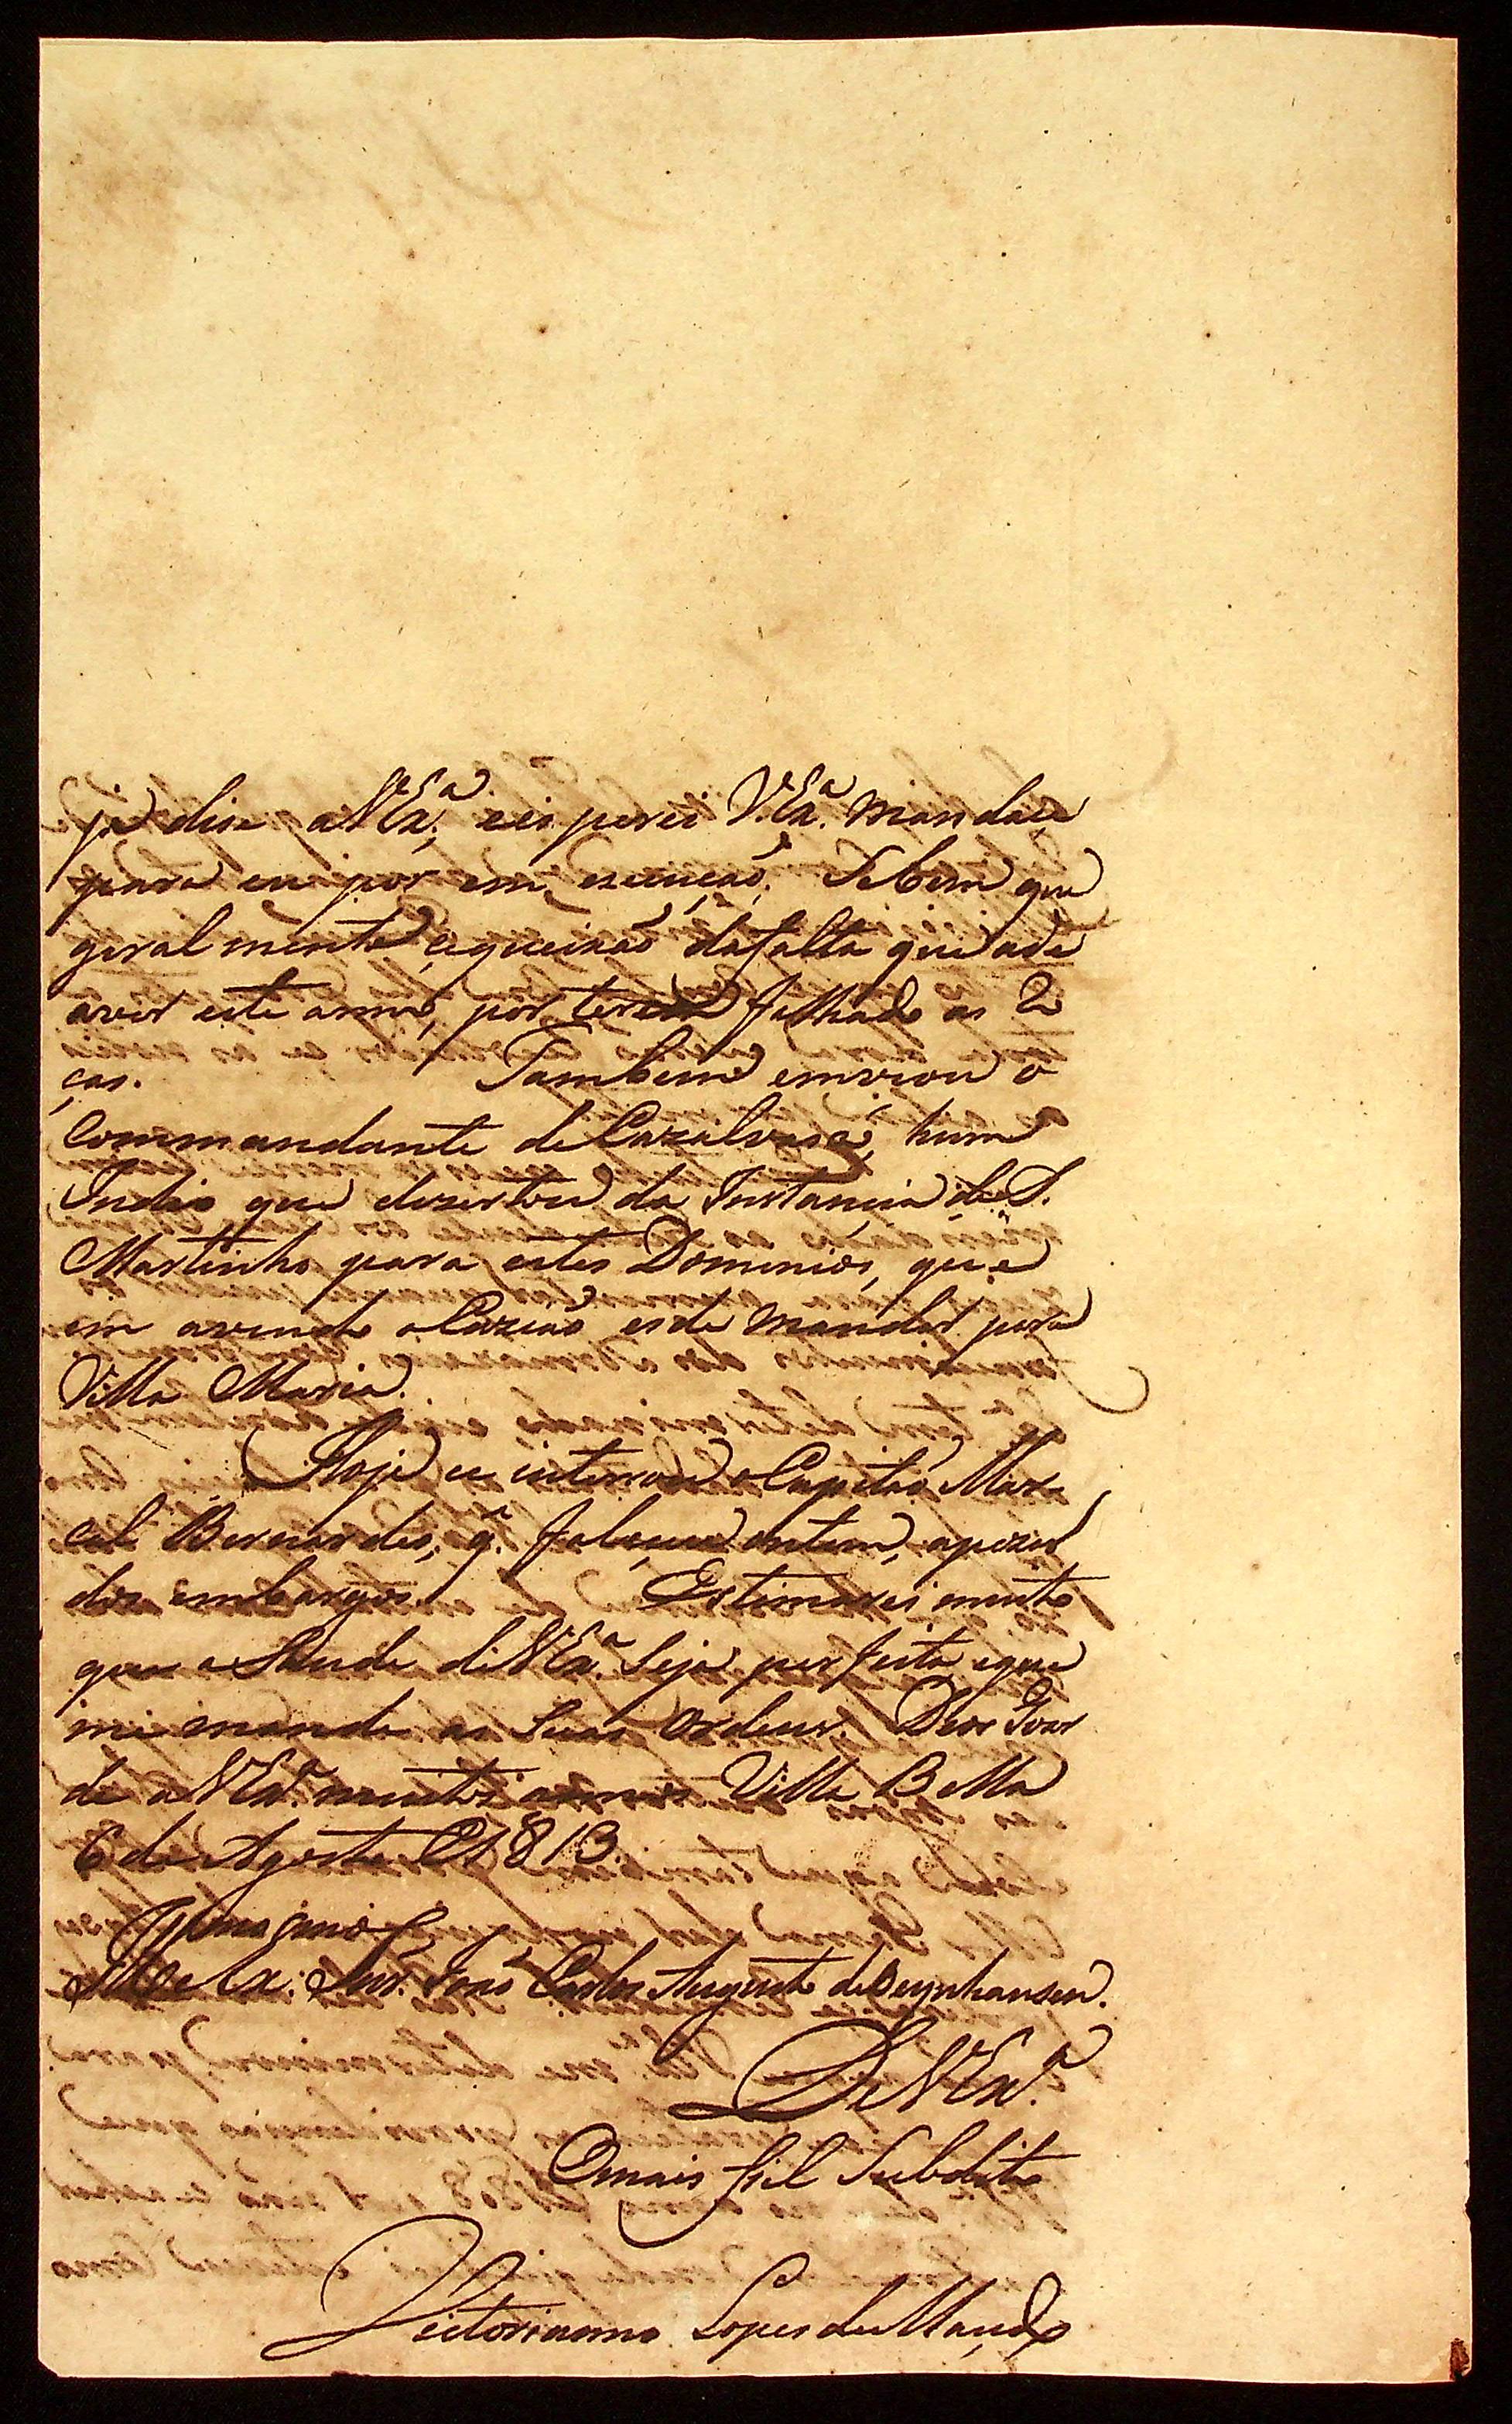 já dise a V.Ex.ª, eis perei V.Ex.ª mandase
para eu por em execução. Se bem que
geral mente ce queixaõ da falta que ade
aver este anno, por terem falhado as Ro
ças. Tambem emviou o
Commandante de Cazalvasco, hum
Indio que dezertou da Instancia de S.
Martinho para estes Dominios, que
em avendo ocaziaõ eide mandar para
Villa Maria.
Hoje ce interrou o Capitaõ Mar
celo Bernardes, q. faleceu ontem, apezar
dos embargos. Estimarei muito
que a Saude de V.Ex.ª Seja perfeita, eque
me mande as Suas Ordens. Deos Goar
de a V.Ex.ª muitos annos Villa Bella
6 de Agosto de 1813.
Illmo e Exmo Snr. Joaõ Carlos Augusto de Oeynhausen.
De V.Ex.ª
O mais fiel Subdito
Victorianno Lopes de Macedo